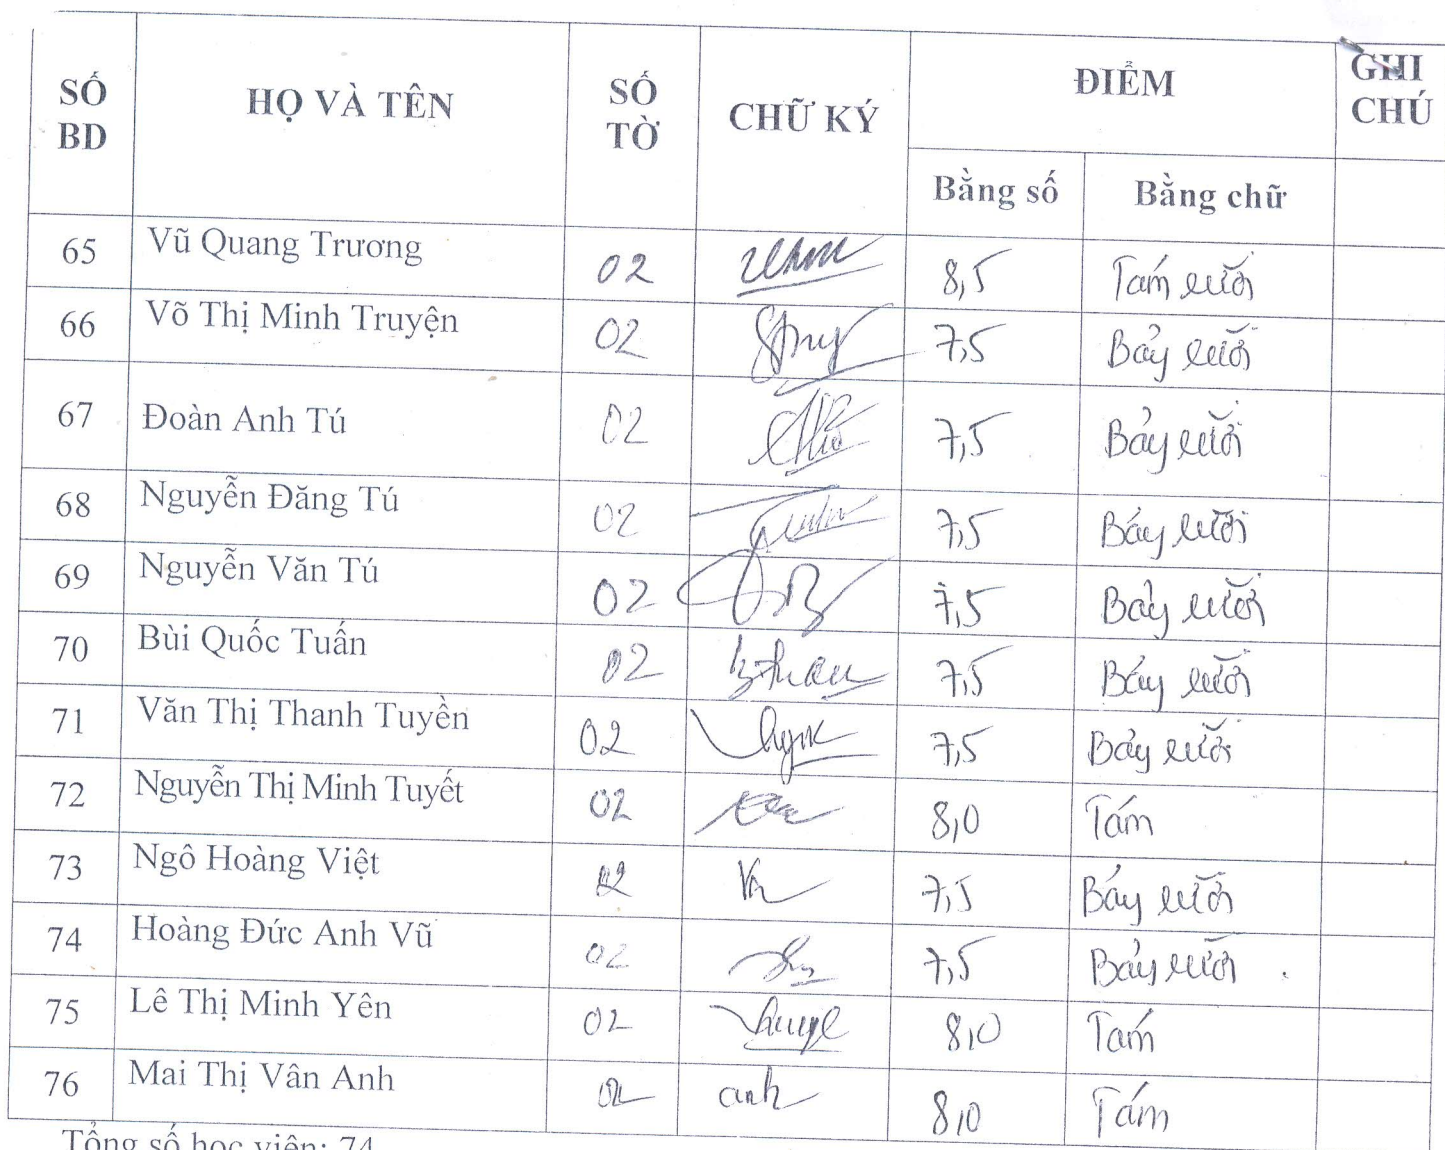 SỐ BD HỌ VÀ TÊN SỐ TỜ CHỮ KÝ ĐIỂM GHI CHÚ
Bằng số Bằng chữ
65 Vũ Quang Trương 02 8,5 Tám rưỡi
66 Võ Thị Minh Truyện 02 7,5 Bảy rưỡi
67 Đoàn Anh Tú 02 7,5 Bảy rưỡi
68 Nguyễn Đăng Tú 02 7,5 Bảy rưỡi
69 Nguyễn Văn Tú 02 7,5 Bảy rưỡi
70 Bùi Quốc Tuấn 02 7,5 Bảy rưỡi
71 Văn Thị Thanh Tuyền 02 7,5 Bảy rưỡi
72 Nguyễn Thị Minh Tuyết 02 8,0 Tám
73 Ngô Hoàng Việt 02 7,5 Bảy rưỡi
74 Hoàng Đức Anh Vũ 02 7,5 Bảy rưỡi
75 Lê Thị Minh Yên 02 8,0 Tám
76 Mai Thị Vân Anh 02 anh 8,0 Tám
Tổng số học viên: 74